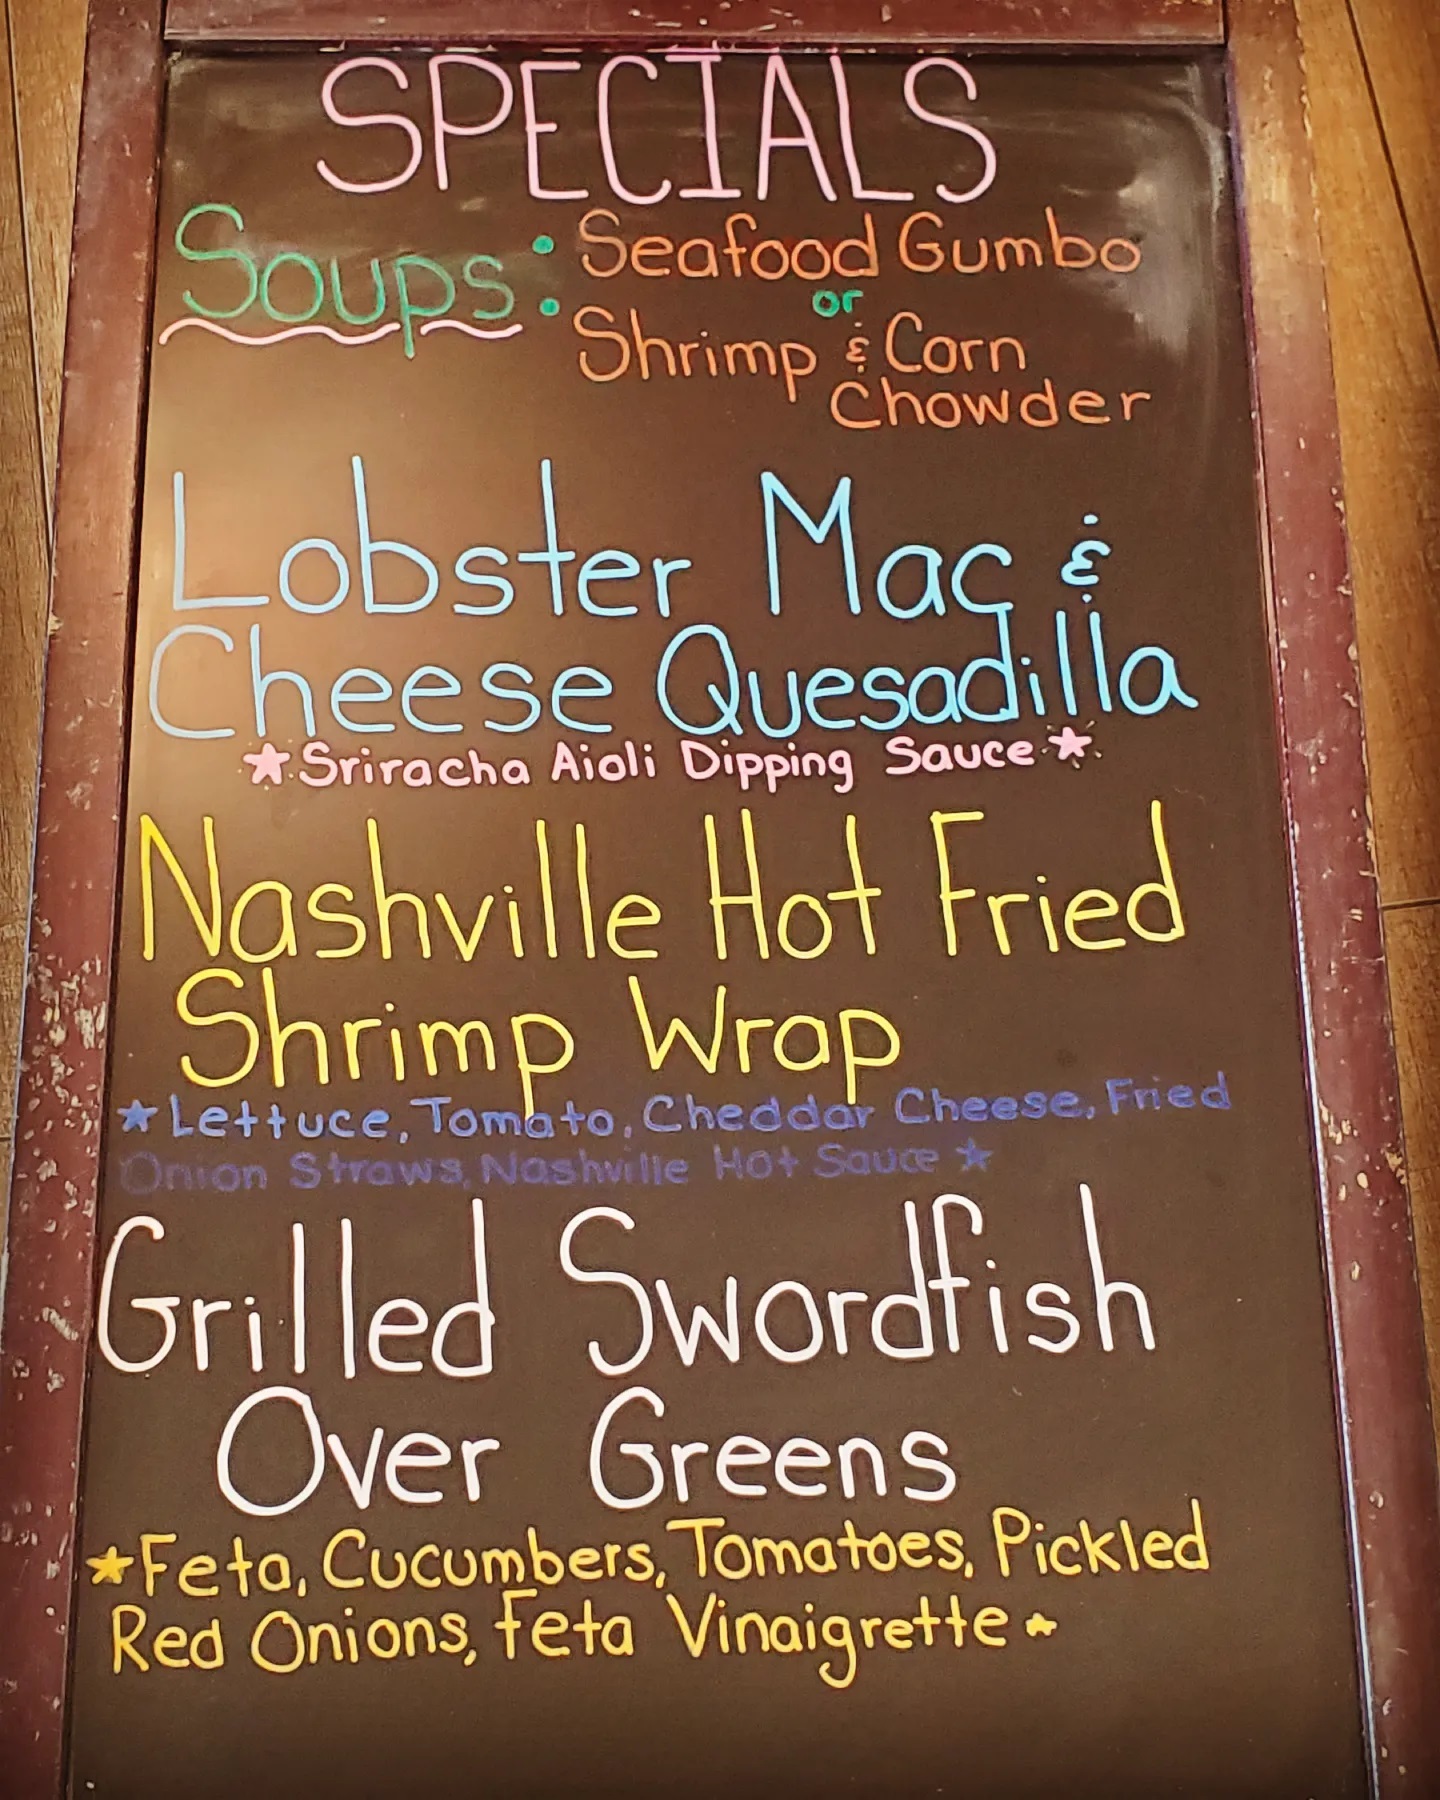 SPECIALS
Soups: Seafood Gumbo
or
Shrimp & Corn
Chowder
Lobster Mac &
Cheese Quesadilla
★Sriracha Aioli Dipping Sauce★
Nashville Hot Fried
Shrimp Wrap
★Lettuce, Tomato, Cheddar Cheese, Fried
Onion Straws, Nashville Hot Sauce★
Grilled Swordfish
Over Greens
★Feta, Cucumbers, Tomatoes, Pickled
Red Onions, Feta Vinaigrette★